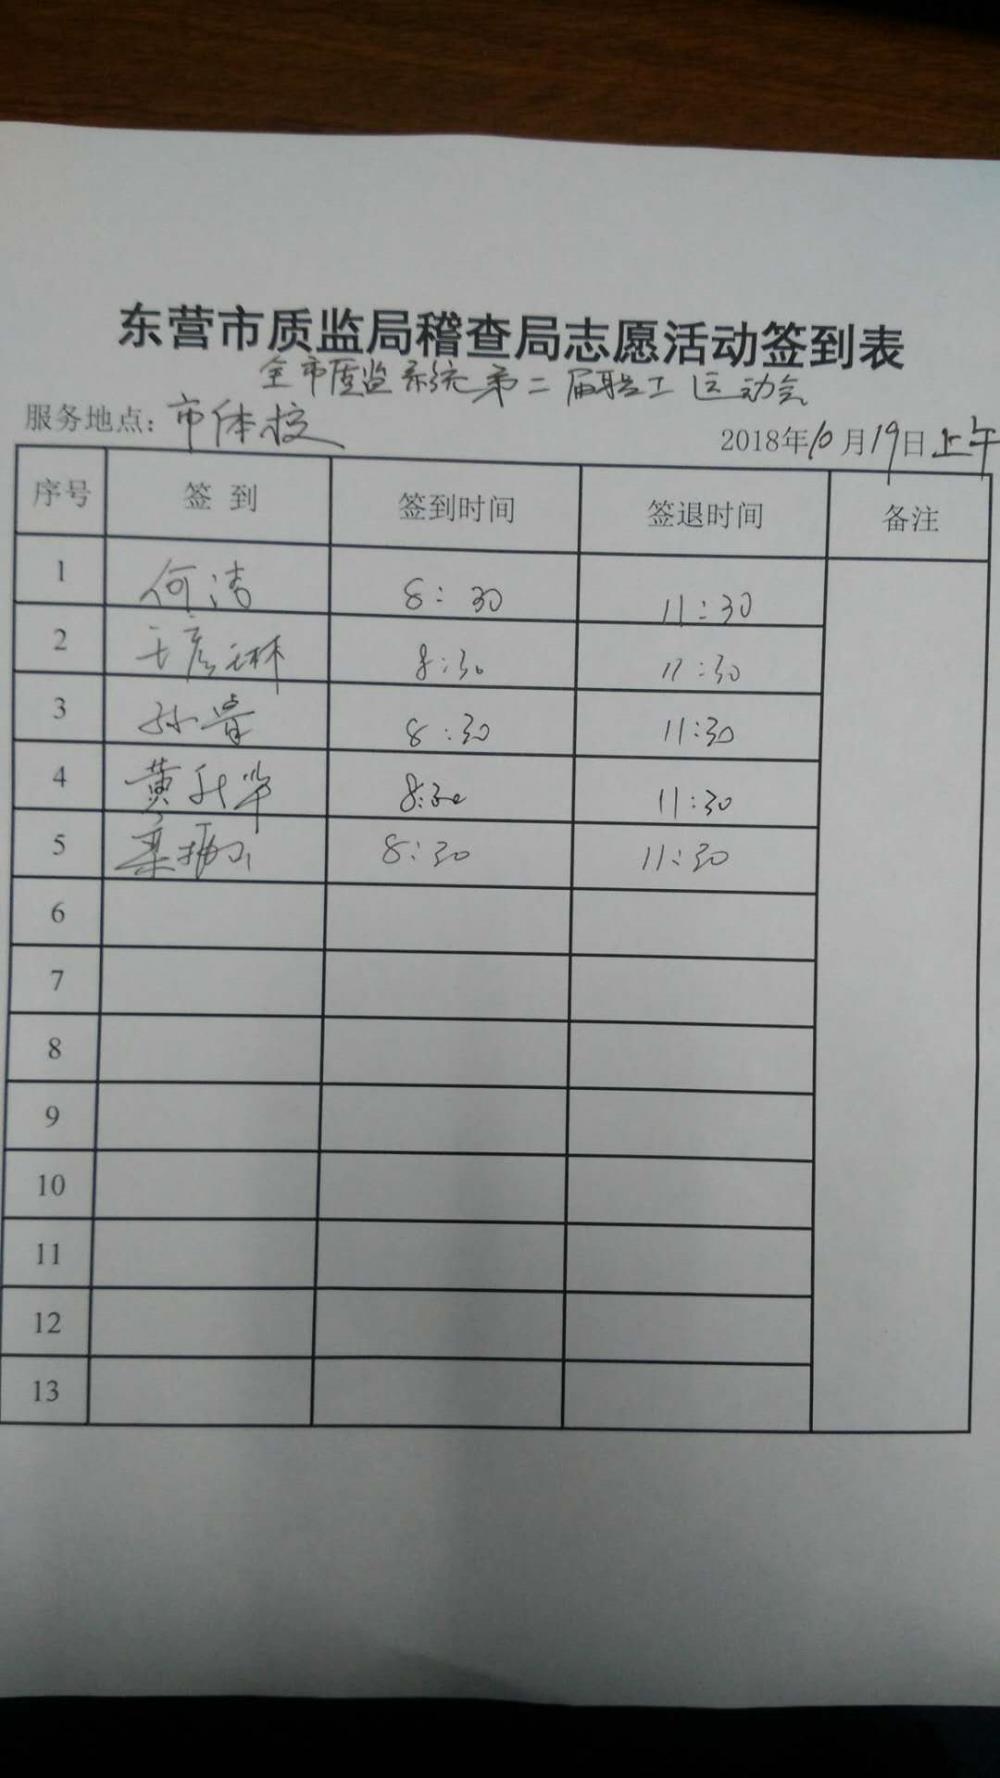 东营市质监局稽查局志愿活动签到表
全市质监系统第二届职工运动会
服务地点：市体校
2018年10月19日上午
序号 签到 签到时间 签退时间 备注
1 何洁 8:30 11:30
2 于彦琳 8:30 11:30
3 孙睿 8:30 11:30
4 黄秋华 8:30 11:30
5 8:30 11:30
6
7
8
9
10
11
12
13